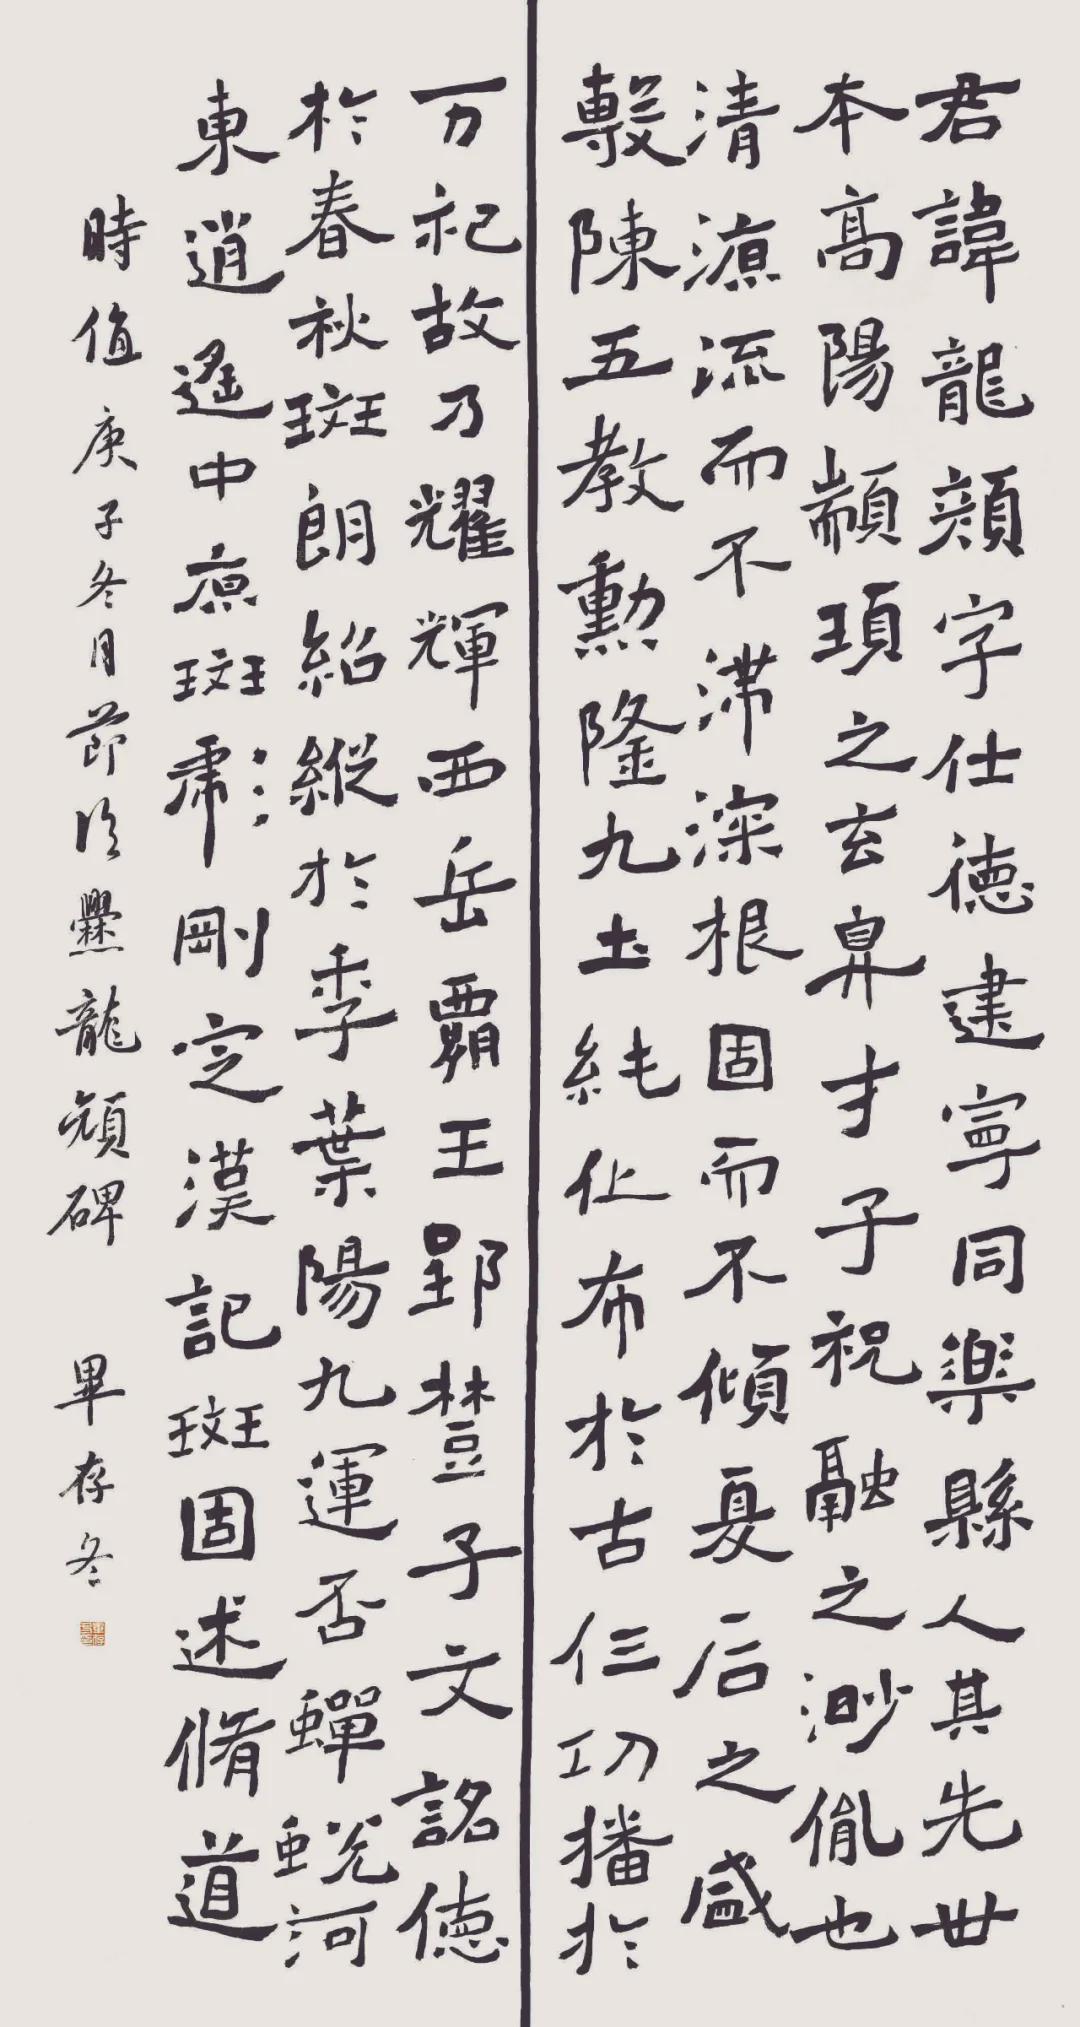 君諱龍顏字仕德建寧同樂縣人其先世
本高陽顓頊之玄冑才子祝融之渺胤也
清源流而不滯深根固而不傾夏后之盛
敷陳五教勳隆九土純化布於古仁功播於
万祀故乃耀輝西岳霸王郢楚子文詺德
於春秋斑朗紹縱於季葉陽九運否蟬蛻河
東逍遙中原斑彪剛定漢記斑固述脩道
時值庚子冬月節臨爨龍顏碑
畢存冬